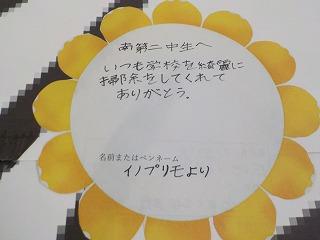 南第二中生へ
いつも学校を綺麗に
お掃除をしてくれて
ありがとう。
名前またはペンネーム
イノプリモより